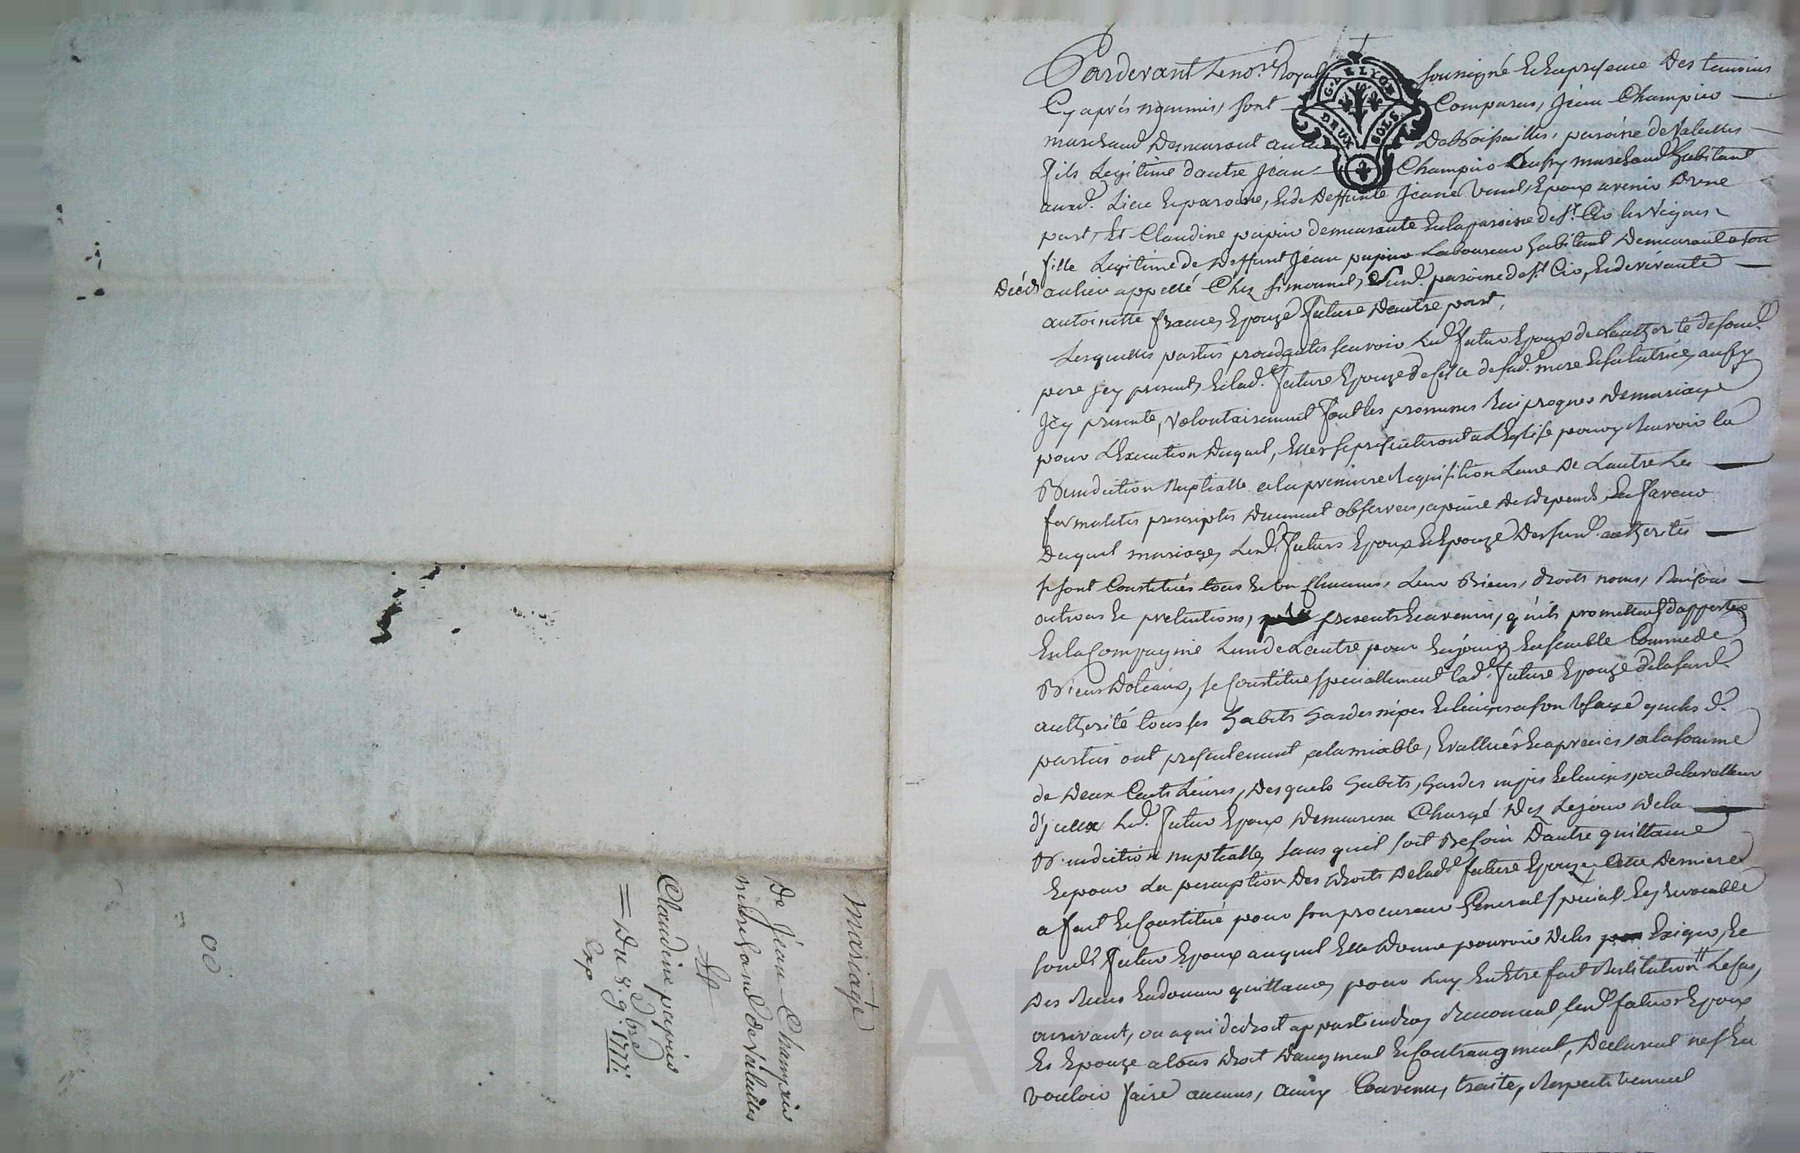 Pardevant Le no.re Royal soussigné Et En presence Des temoins
Cy aprés nommes, sont Comparus, Jean Champiro
marchand Demeurant au paroisse de Valeilles
fils Legitime d'autre Jean Champiro aussy marchand habitant
aud. Lieu Et paroisse, Et de Deffunte Jeane Epoux avenir D'une
part, Et Claudine papiro demeurante En la paroisse de St. Cio les Vignes
fille Legitime de Deffunt Jean papiro Laboureur habitant Demeurant a son
Décés au lieu appellé Chez Simounet, Susd. paroisse de St. Cio, Et de vivante
antoinette france, Epouze future D'autre part,
Lesquelles parties procedantes scavoir Led. futur Epoux de L'authorité de sond.
pere Jcy present, Et lad. future Epouze de celle de sad. mere Et tutrice, aussy
Jcy presente, volontairement font les promesses Reciproques De mariage
pour L'Execution Duquel, Elles se presenteront a L'Eglise pour y Recevoir la
Benediction Nuptialle a la premiere Requisition L'une De L'autre Les
formalités prescriptes Duement observées, a peine De Depends, En faveur
Duquel mariage, Lesd. futurs Epoux Et Epouze Des susd. authorités
se sont Constitués tous Et un Chacuns, Leur Biens, droits noms, Raisons
actions Et pretentions, presents Et avenir, qu'ils promettent d'apporter
En la Compagnie L'un de L'autre pour En jouir Ensemble Comme de
Biens Dotaux, se Constitue specialement lad. future Epouze de la susd.
authorité tous ses habits hardes nipes Et linges a son Usage que les d.
parties ont presentement a L'amiable, Evallués Et apreciés, a la somme
de Deux Cents Livres, Desquels habits, hardes nipes Et linges, ou de la valleur
d'Jceux Led. futur Epoux Demeurera Chargé Dez Le jour De la
Benediction nuptialle, sans qu'il soit Besoin D'autre quittance
Et pour La perception Des Droits De lad. future Epouze, Cette Derniere
a fait Et Constitué pour son procureur General special Et Jrrevocable
sond. futur Epoux auquel Elle Donne pouvoir De les Exiger, Et
Des Recus En donner quittances, pour Luy En Etre fait Restitution Le cas
arrivant, ou a qui de droit appartiendra, Renoncent, lesd. futurs Epoux
Et Epouze a tous Droit D'augment Et Contraugment, Declarent n'est En
vouloir faire aucuns, ainsy Convenu, traité, Respectivement
mariage
De Jean Champiro
marchand de Valeilles
Et
Claudine papiro
= Du 5. 9bre 1771:
Exp
G. DE LYON
DEUX SOLS